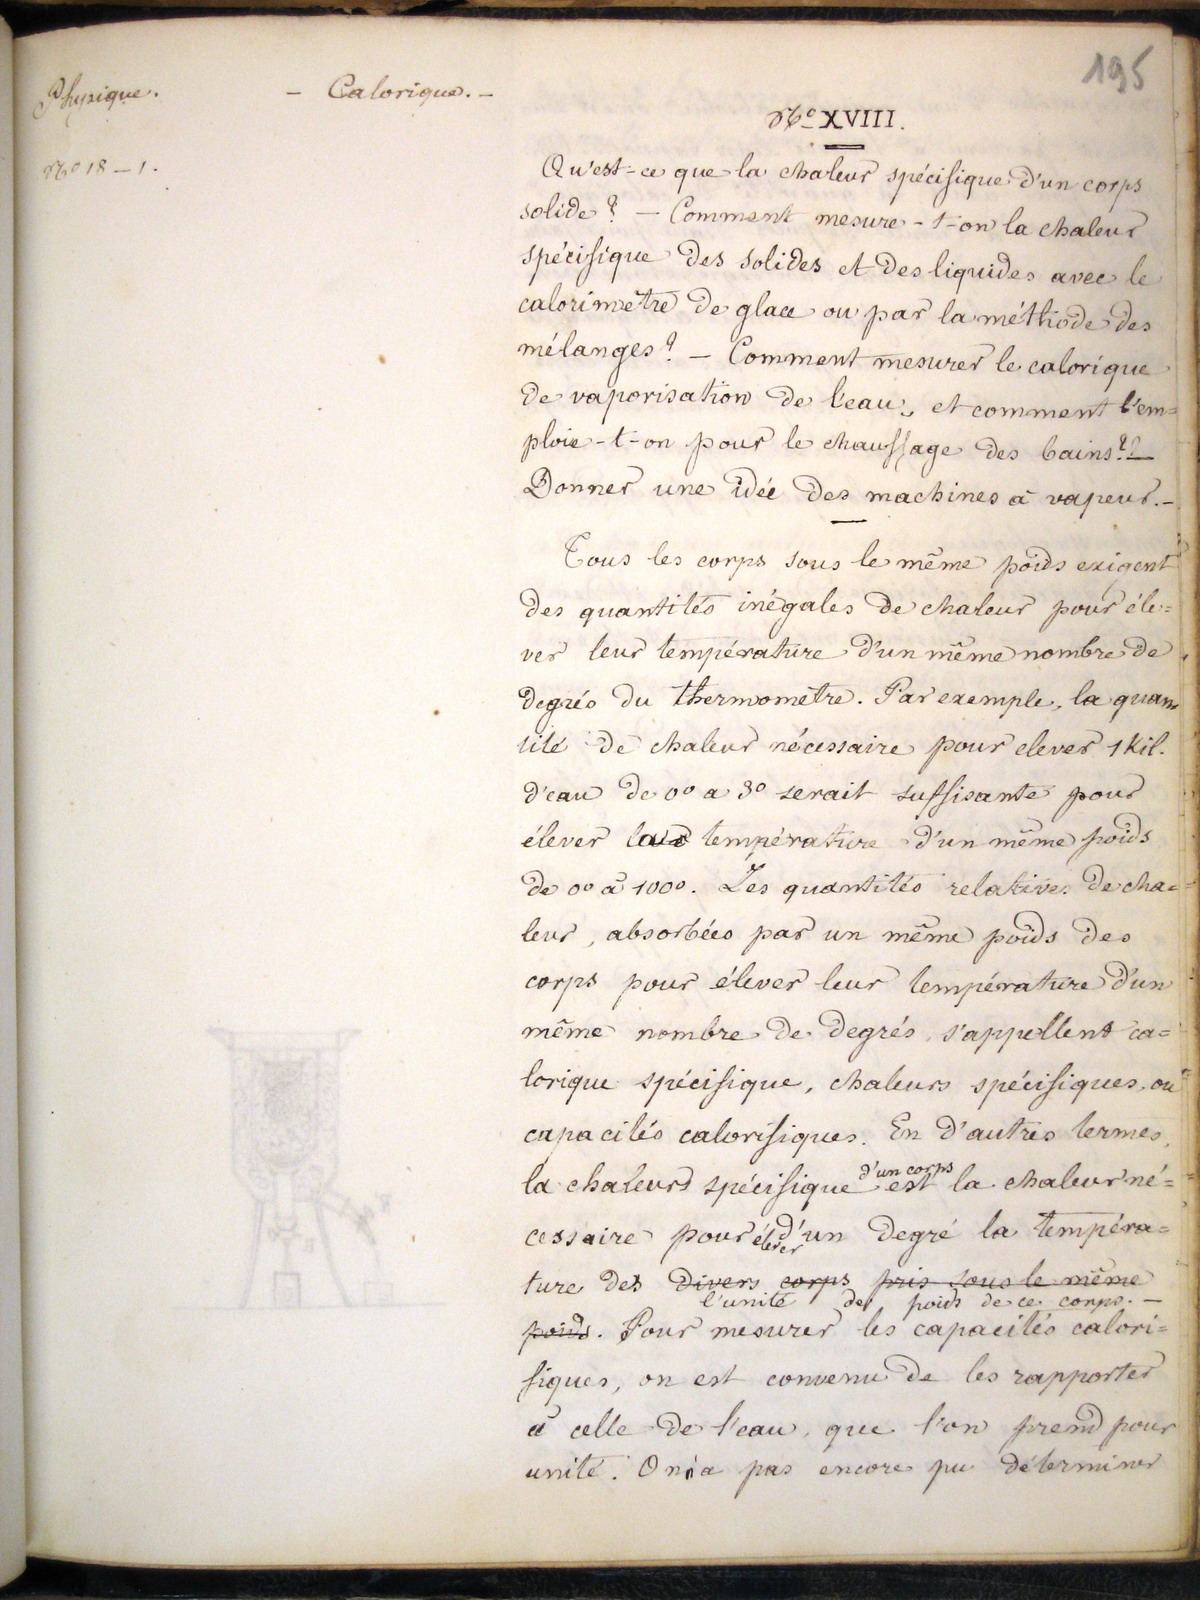 195
Physique. — Calorique. —
No 18 — 1.
No XVIII.
Qu'est-ce que la chaleur spécifique d'un corps
solide ? — Comment mesure-t-on la chaleur
spécifique des solides et des liquides avec le
calorimètre de glace ou par la méthode des
mélanges ? — Comment mesurer le calorique
de vaporisation de l'eau, et comment l'em=
ploie-t-on pour le chauffage des bains ? —
Donner une idée des machines à vapeur. —
Tous les corps sous le même poids exigent
des quantités inégales de chaleur pour éle=
ver leur température d'un même nombre de
degrés du thermomètre. Par exemple, la quan
tité de chaleur nécessaire pour elever 1 Kil.
d'eau de 0° a 3° serait suffisante pour
élever la température d'un même poids
de 0° à 100°. Les quantités relatives de cha=
leur, absorbées par un même poids des
corps pour élever leur température d'un
même nombre de degrés, s'appellent ca=
lorique spécifique, chaleurs spécifiques, ou
capacités calorifiques. En d'autres termes,
la chaleur spécifique d'un corps est la chaleur né=
cessaire pour élever d'un degré la tempéra=
ture des divers corps pris sous le même
l'unité de poids de ce corps. —
poids. Pour mesurer les capacités calori=
fiques, on est convenu de les rapporter
à celle de l'eau, que l'on prend pour
unité. On n'a pas encore pu déterminer